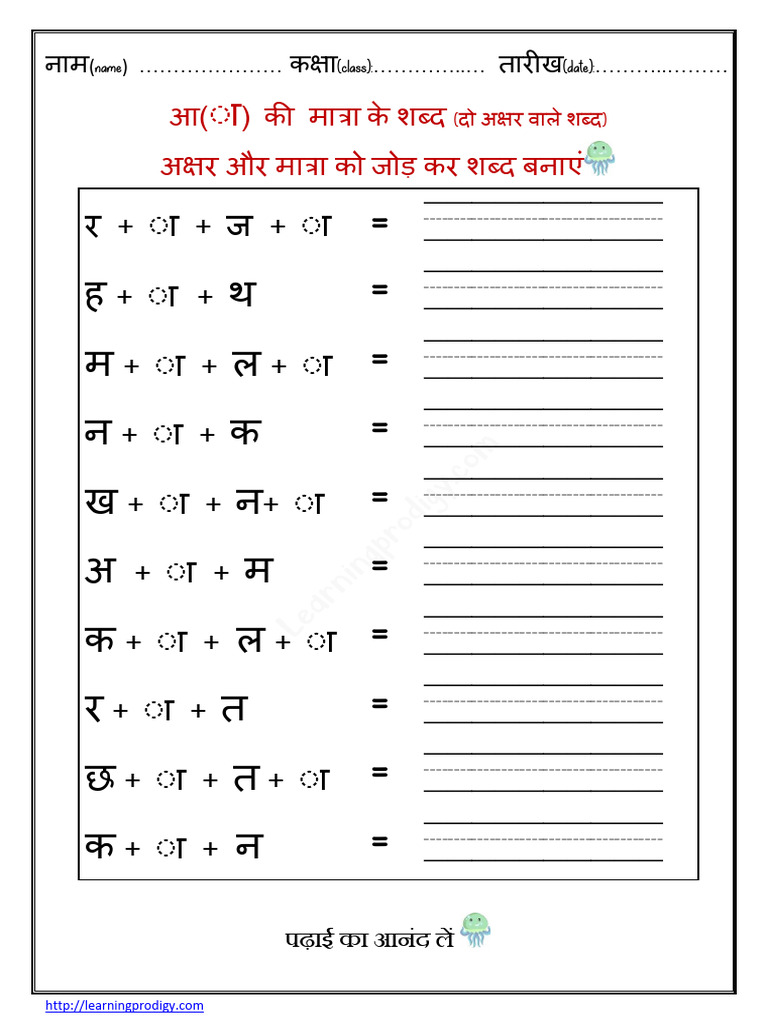 नाम(name) ………………… कक्षा(class):…………..… तारीख(date):………..………
आ(ा) की मात्रा के शब्द (दो अक्षर वाले शब्द)
अक्षर और मात्रा को जोड़ कर शब्द बनाएं
र + ा + ज + ा =
ह + ा + थ =
म + ा + ल + ा =
न + ा + क =
ख + ा + न+ ा =
अ + ा + म =
क + ा + ल + ा =
र + ा + त =
छ + ा + त + ा =
क + ा + न =
Learningprodigy.com
पढ़ाई का आनंद लें
http://learningprodigy.com